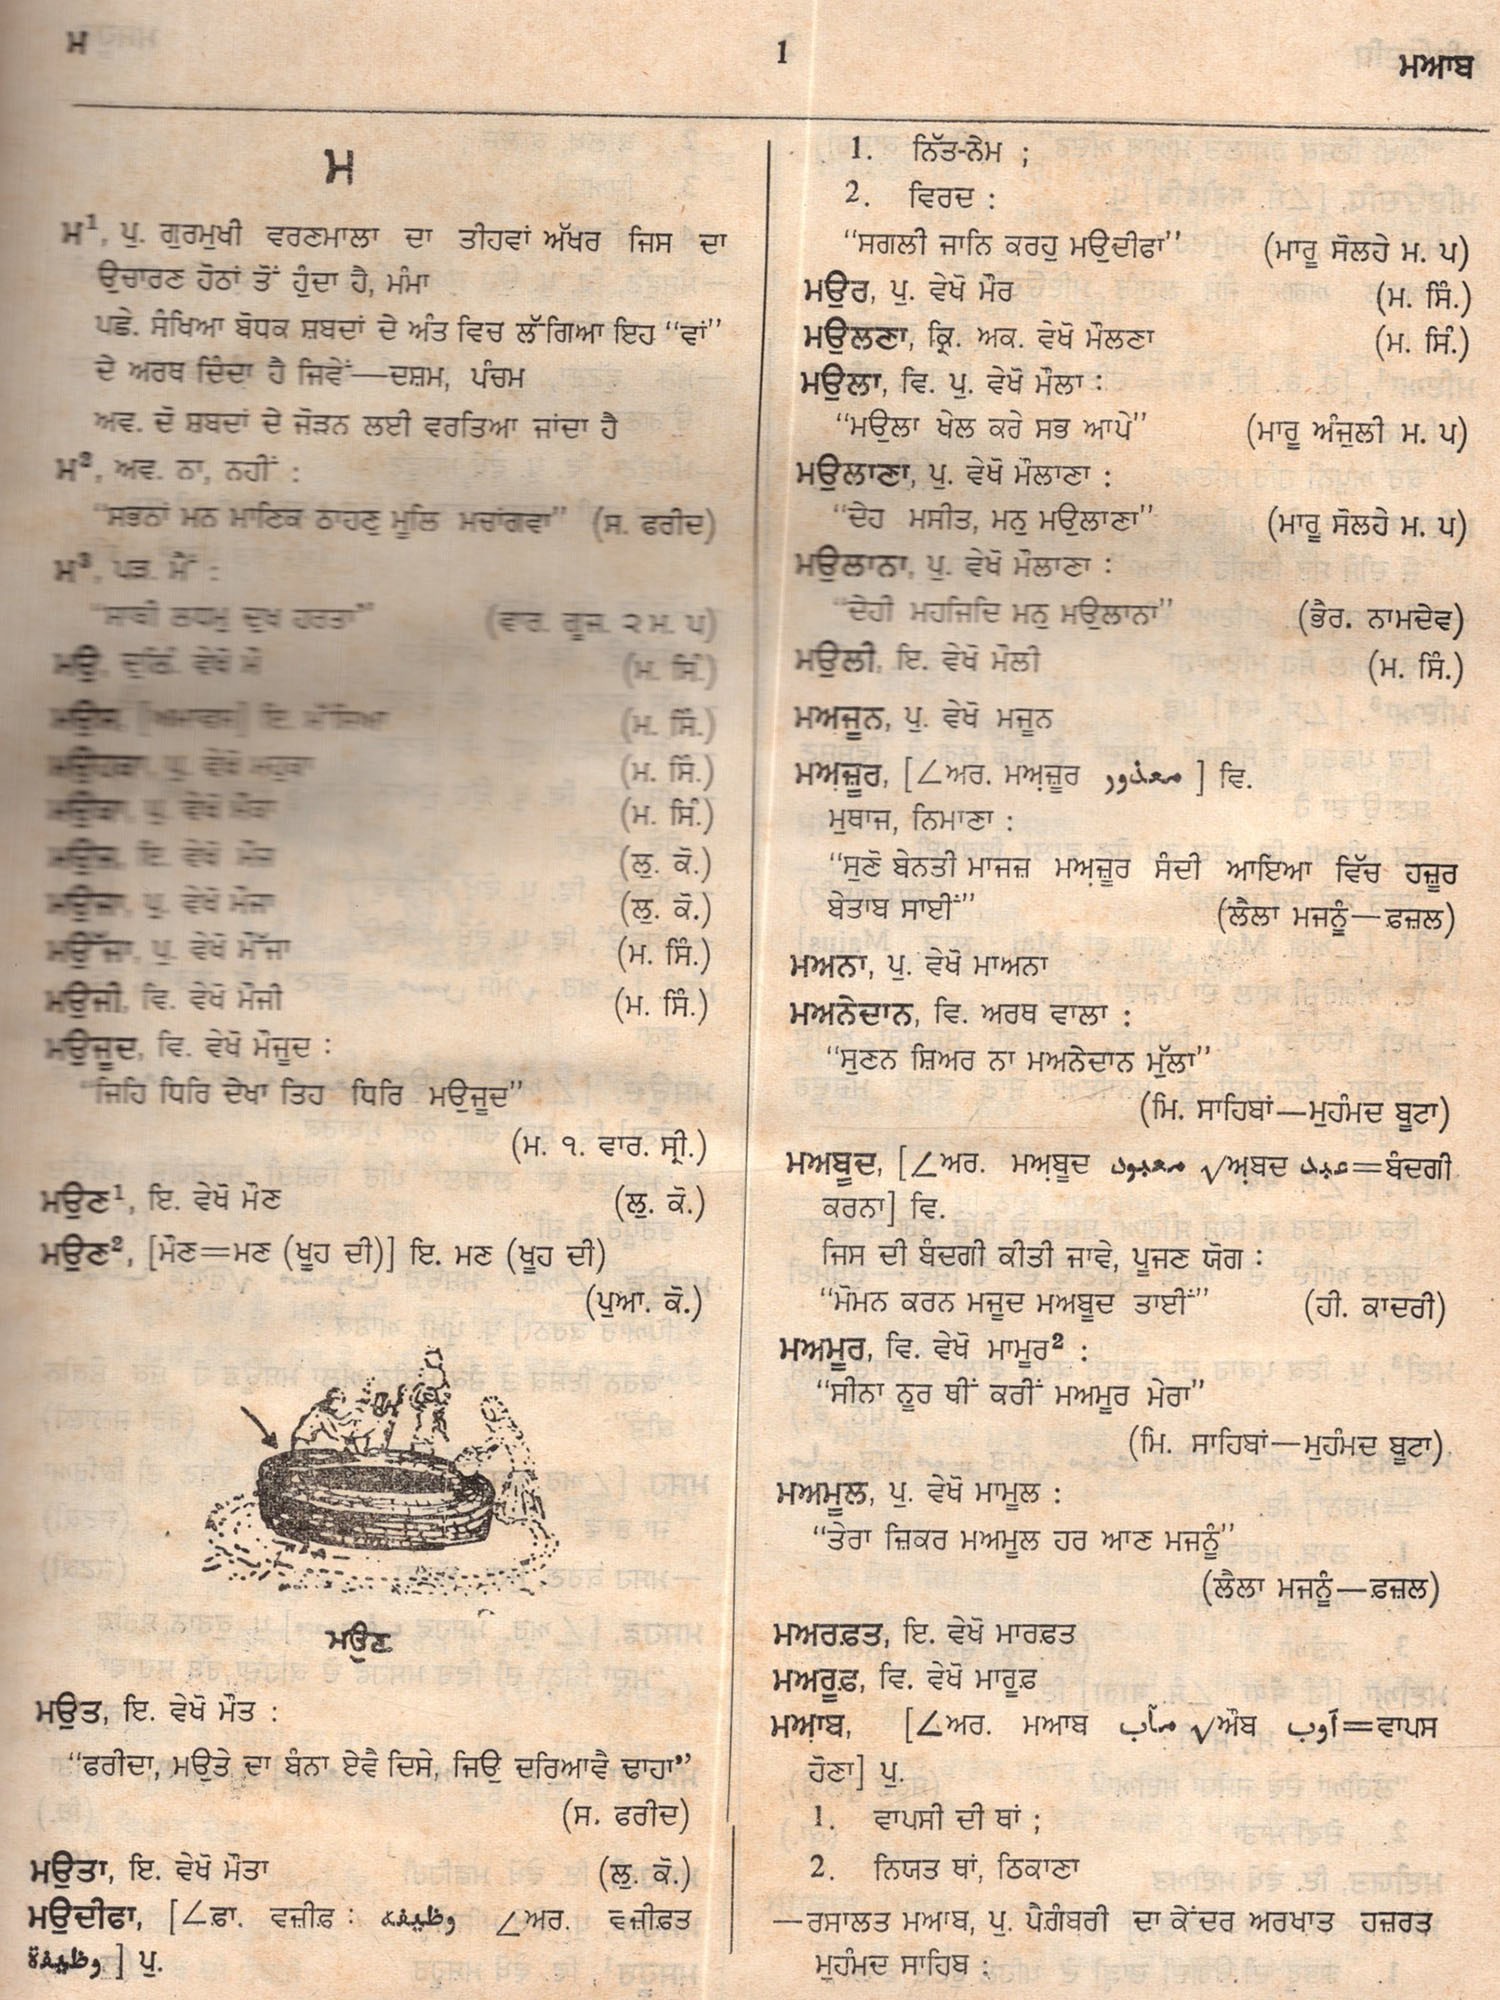 ਮ
1
ਮਆਬ
ਮ
ਮ¹, ਪੁ. ਗੁਰਮੁਖੀ ਵਰਣਮਾਲਾ ਦਾ ਤੀਹਵਾਂ ਅੱਖਰ ਜਿਸ ਦਾ
ਉਚਾਰਣ ਹੋਠਾਂ ਤੋਂ ਹੁੰਦਾ ਹੈ, ਮੰਮਾ
ਪਛੇ. ਸੰਖਿਆ ਬੋਧਕ ਸ਼ਬਦਾਂ ਦੇ ਅੰਤ ਵਿਚ ਲੱਗਿਆ ਇਹ “ਵਾਂ”
ਦੇ ਅਰਥ ਦਿੰਦਾ ਹੈ ਜਿਵੇਂ—ਦਸ਼ਮ, ਪੰਚਮ
ਅਵ. ਦੋ ਸ਼ਬਦਾਂ ਦੇ ਜੋੜਨ ਲਈ ਵਰਤਿਆ ਜਾਂਦਾ ਹੈ
ਮ², ਅਵ. ਨਾ, ਨਹੀਂ :
“ਸਭਨਾਂ ਮਨ ਮਾਣਿਕ ਠਾਹਣੁ ਮੂਲਿ ਮਚਾਂਗਵਾ” (ਸ. ਫਰੀਦ)
ਮ³, ਪੜ. ਮੈਂ :
“ਸਾਕੀ ਲਧਮੁ ਦੁਖ ਹਰਤਾ” (ਵਾਰ. ਗੂਜ. ੨ ਮ. ਪ)
ਮਉ, ਵੇਖੋ ਮੌ (ਮ. ਸਿੰ.)
ਮਉਸ, [ਅਮਾਵਸ] ਇ. ਮੱਸਿਆ (ਮ. ਸਿੰ.)
ਮਉਹਕਾ, ਪੁ. ਵੇਖੋ ਮਹੁਕਾ (ਮ. ਸਿੰ.)
ਮਉਕਾ, ਪੁ. ਵੇਖੋ ਮੌਕਾ (ਮ. ਸਿੰ.)
ਮਉਜ, ਇ. ਵੇਖੋ ਮੌਜ (ਲੁ. ਕੋ.)
ਮਉਜਾ, ਪੁ. ਵੇਖੋ ਮੌਜਾ (ਲੁ. ਕੋ.)
ਮਉੱਜਾ, ਪੁ. ਵੇਖੋ ਮੌੱਜਾ (ਮ. ਸਿੰ.)
ਮਉਜੀ, ਵਿ. ਵੇਖੋ ਮੌਜੀ (ਮ. ਸਿੰ.)
ਮਉਜੂਦ, ਵਿ. ਵੇਖੋ ਮੌਜੂਦ :
“ਜਿਹਿ ਧਿਰਿ ਦੇਖਾ ਤਿਹ ਧਿਰਿ ਮਉਜੂਦ”
(ਮ. ੧. ਵਾਰ. ਸ੍ਰੀ.)
ਮਉਣ¹, ਇ. ਵੇਖੋ ਮੌਣ (ਲੁ. ਕੋ.)
ਮਉਣ², [ਮੌਣ=ਮਣ (ਖੂਹ ਦੀ)] ਇ. ਮਣ (ਖੂਹ ਦੀ)
(ਪੁਆ. ਕੋ.)
ਮਉਣ
ਮਉਤ, ਇ. ਵੇਖੋ ਮੌਤ :
“ਫਰੀਦਾ, ਮਉਤੇ ਦਾ ਬੰਨਾ ਏਵੈ ਦਿਸੇ, ਜਿਉ ਦਰਿਆਵੈ ਢਾਹਾ”
(ਸ. ਫਰੀਦ)
ਮਉਤਾ, ਇ. ਵੇਖੋ ਮੌਤਾ (ਲੁ. ਕੋ.)
ਮਉਦੀਫਾ, [∠ਫ਼ਾ. ਵਜ਼ੀਫ਼ : وظیفہ ∠ਅਰ. ਵਜ਼ੀਫ਼ਤ
وظیفۃ ] ਪੁ.
1. ਨਿੱਤ-ਨੇਮ ;
2. ਵਿਰਦ :
“ਸਗਲੀ ਜਾਨਿ ਕਰਹੁ ਮਉਦੀਫਾ” (ਮਾਰੂ ਸੋਲਹੇ ਮ. ਪ)
ਮਉਰ, ਪੁ. ਵੇਖੋ ਮੌਰ (ਮ. ਸਿੰ.)
ਮਉਲਣਾ, ਕ੍ਰਿ. ਅਕ. ਵੇਖੋ ਮੌਲਣਾ (ਮ. ਸਿੰ.)
ਮਉਲਾ, ਵਿ. ਪੁ. ਵੇਖੋ ਮੌਲਾ :
“ਮਉਲਾ ਖੇਲ ਕਰੇ ਸਭ ਆਪੇ” (ਮਾਰੂ ਅੰਜੁਲੀ ਮ. ਪ)
ਮਉਲਾਣਾ, ਪੁ. ਵੇਖੋ ਮੌਲਾਣਾ :
“ਦੇਹ ਮਸੀਤ, ਮਨੁ ਮਉਲਾਣਾ” (ਮਾਰੂ ਸੋਲਹੇ ਮ. ਪ)
ਮਉਲਾਨਾ, ਪੁ. ਵੇਖੋ ਮੌਲਾਣਾ :
“ਦੇਹੀ ਮਹਜਿਦਿ ਮਨੁ ਮਉਲਾਨਾ” (ਭੈਰ. ਨਾਮਦੇਵ)
ਮਉਲੀ, ਇ. ਵੇਖੋ ਮੌਲੀ (ਮ. ਸਿੰ.)
ਮਅਜੂਨ, ਪੁ. ਵੇਖੋ ਮਜੂਨ
ਮਅਜ਼ੂਰ, [∠ਅਰ. ਮਅਜ਼ੂਰ معذور ] ਵਿ.
ਮੁਥਾਜ, ਨਿਮਾਣਾ :
“ਸੁਣੋ ਬੇਨਤੀ ਮਾਜਜ਼ ਮਅਜ਼ੂਰ ਸੰਦੀ ਆਇਆ ਵਿੱਚ ਹਜ਼ੂਰ
ਬੇਤਾਬ ਸਾਈਂ” (ਲੈਲਾ ਮਜਨੂੰ—ਫਜ਼ਲ)
ਮਅਨਾ, ਪੁ. ਵੇਖੋ ਮਾਅਨਾ
ਮਅਨੇਦਾਨ, ਵਿ. ਅਰਥ ਵਾਲਾ :
“ਸੁਣਨ ਸ਼ਿਅਰ ਨਾ ਮਅਨੇਦਾਨ ਮੁੱਲਾ”
(ਮਿ. ਸਾਹਿਬਾਂ—ਮੁਹੰਮਦ ਬੂਟਾ)
ਮਅਬੂਦ, [∠ਅਰ. ਮਅਬੂਦ معبود √ਅ਼ਬਦ عبد=ਬੰਦਗੀ
ਕਰਨਾ] ਵਿ.
ਜਿਸ ਦੀ ਬੰਦਗੀ ਕੀਤੀ ਜਾਵੇ, ਪੂਜਣ ਯੋਗ :
“ਮੋਮਨ ਕਰਨ ਮਜੂਦ ਮਅਬੂਦ ਤਾਈਂ” (ਹੀ. ਕਾਦਰੀ)
ਮਅਮੂਰ, ਵਿ. ਵੇਖੋ ਮਾਮੂਰ² :
“ਸੀਨਾ ਨੂਰ ਥੀਂ ਕਰੀਂ ਮਅਮੂਰ ਮੇਰਾ”
(ਮਿ. ਸਾਹਿਬਾਂ—ਮੁਹੰਮਦ ਬੂਟਾ)
ਮਅਮੂਲ, ਪੁ. ਵੇਖੋ ਮਾਮੂਲ :
“ਤੇਰਾ ਜ਼ਿਕਰ ਮਅਮੂਲ ਹਰ ਆਣ ਮਜਨੂੰ”
(ਲੈਲਾ ਮਜਨੂੰ—ਫ਼ਜ਼ਲ)
ਮਅਰਫ਼ਤ, ਇ. ਵੇਖੋ ਮਾਰਫ਼ਤ
ਮਅਰੂਫ਼, ਵਿ. ਵੇਖੋ ਮਾਰੂਫ਼
ਮਆਬ, [∠ਅਰ. ਮਆਬ مآب √ਔਬ آوب=ਵਾਪਸ
ਹੋਣਾ] ਪੁ.
1. ਵਾਪਸੀ ਦੀ ਥਾਂ ;
2. ਨਿਯਤ ਥਾਂ, ਠਿਕਾਣਾ
—ਰਸਾਲਤ ਮਆਬ, ਪੁ. ਪੈਗ਼ੰਬਰੀ ਦਾ ਕੇਂਦਰ ਅਰਥਾਤ ਹਜ਼ਰਤ
ਮੁਹੰਮਦ ਸਾਹਿਬ :